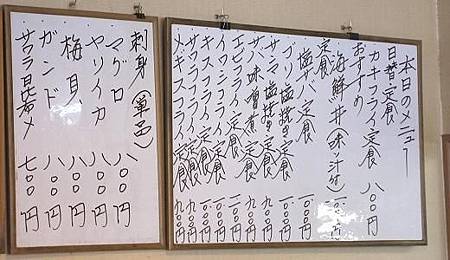 本日のメニュー
日替定食
カキフライ定食 八〇〇円
おすすめ
海鮮丼(味汁付)
定食
塩サバ定食
ブリ塩焼き定食
サンマ塩焼き(定食) 九〇〇円
サバ味噌煮(定食) 九〇〇円
エビフライ(定食)
イワシフライ(定食)
キスフライ(定食)
フライ(定食)
メキスフライ(定食) 九〇〇円
刺身(単品)
マグロ 八〇〇円
ヤリイカ 八〇〇円
梅貝 八〇〇円
ガンド 八〇〇円
サワラ昆布〆 七〇〇円